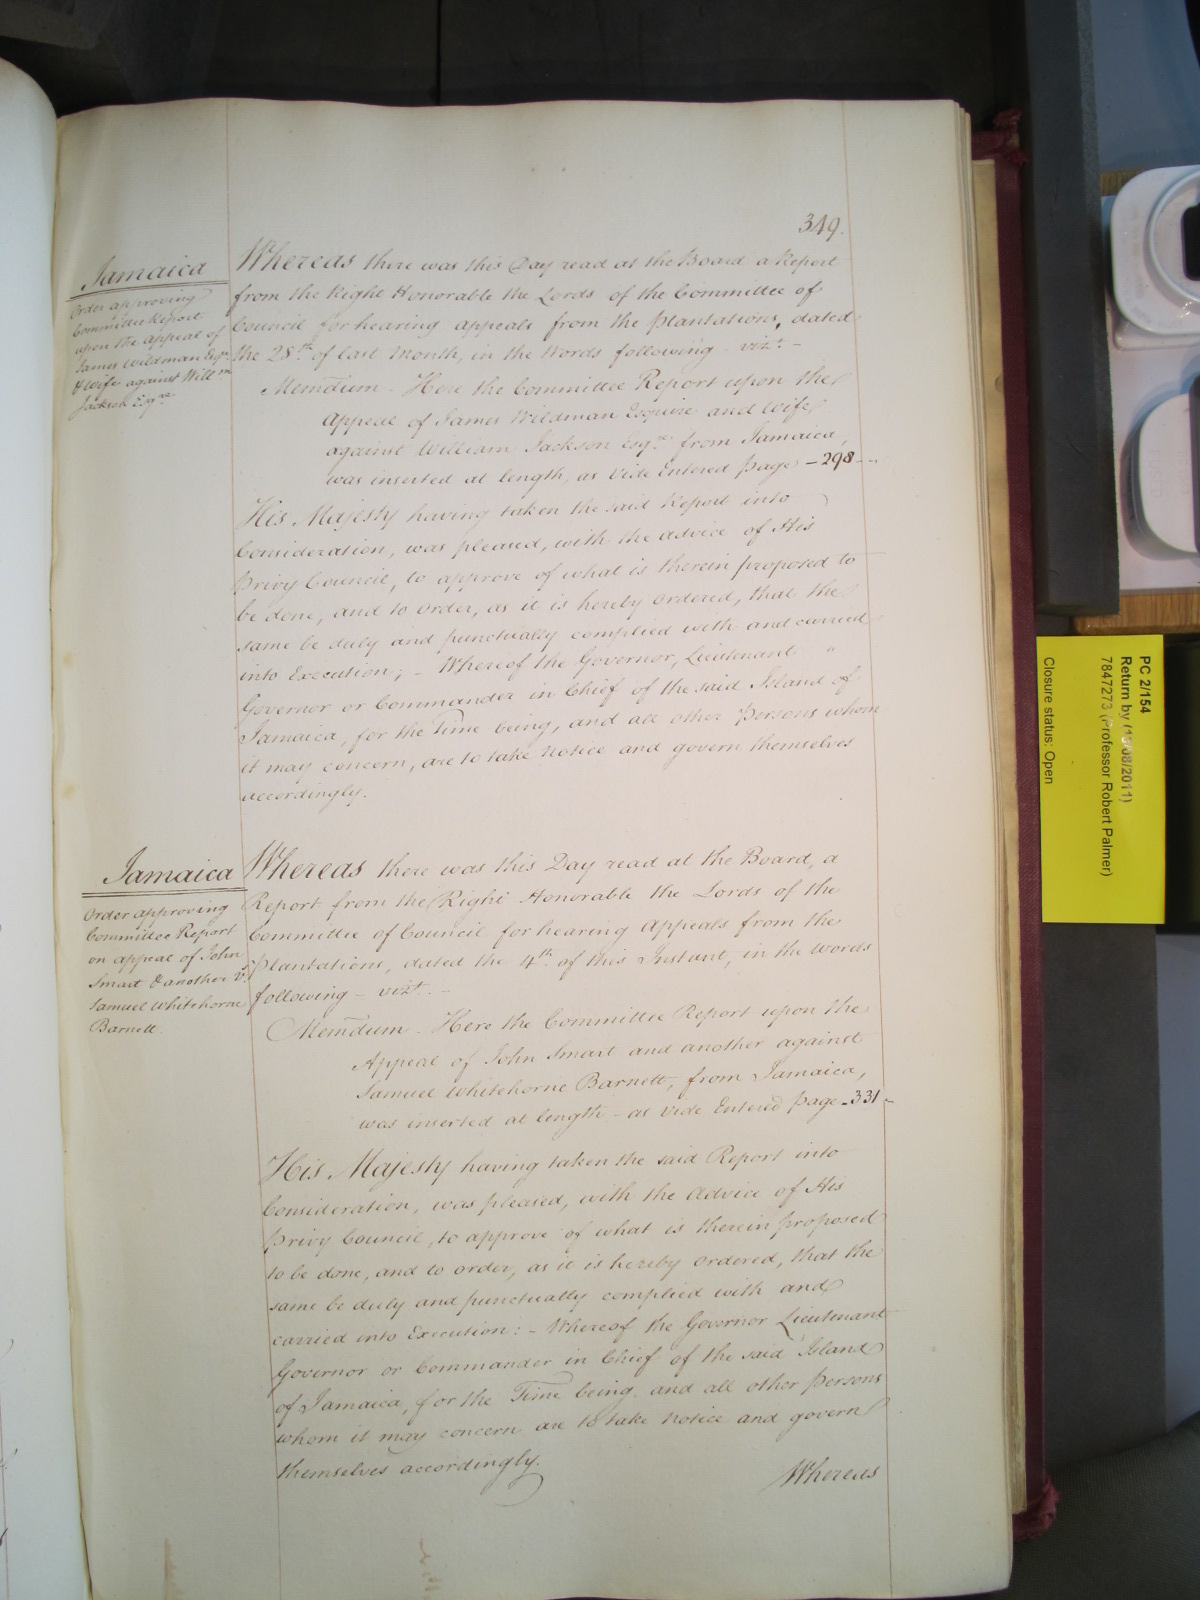 349.
Jamaica
Order approving
Committee Report
upon the Appeal of
James Wildman Esqr.
& Wife against Willm.
Jackson Esqre.
Whereas there was this Day read at the Board a Report
from the Right Honorable the Lords of the Committee of
Council for hearing appeals from the Plantations, dated
the 28th. of last Month, in the Words following - vizt. -
Memdum - Here the Committee Report upon the
Appeal of James Wildman Esquire and Wife
against William Jackson Esqre. from Jamaica,
was inserted at length, as vide Entered Page - 298 -
His Majesty having taken the said Report into
Consideration, was pleased, with the advice of His
Privy Council, to approve of what is therein proposed to
be done, and to order, as it is hereby ordered, that the
same be duly and punctually complied with and carried
into Execution; - Whereof the Governor, Lieutenant "
Governor or Commander in Chief of the said Island of
Jamaica, for the Time being, and all other Persons whom
it may concern, are to take Notice and govern themselves
accordingly.
Jamaica
Order approving
Committee Report
on appeal of John
Smart & another vs.
Samuel Whitehorne
Barnett.
Whereas there was this Day read at the Board, a
Report from the Right Honorable the Lords of the
Committee of Council for hearing Appeals from the
Plantations, dated the 4th. of this Instant, in the Words
following - vizt. -
Memdum - Here the Committee Report upon the
Appeal of John Smart and another against
Samuel Whitehorne Barnett, from Jamaica,
was inserted at length - as vide Entered Page - 331 -
His Majesty having taken the said Report into
Consideration, was pleased, with the Advice of His
Privy Council, to approve of what is therein proposed
to be done, and to order, as it is hereby ordered, that the
same be duly and punctually complied with and
carried into Execution: - Whereof the Governor Lieutenant
Governor or Commander in Chief of the said Island
of Jamaica, for the Time being, and all other Persons
whom it may concern are to take Notice and govern
themselves accordingly.
Whereas
PC 2/154
Return by (13/08/2011)
7847273 (Professor Robert Palmer)
Closure status: Open